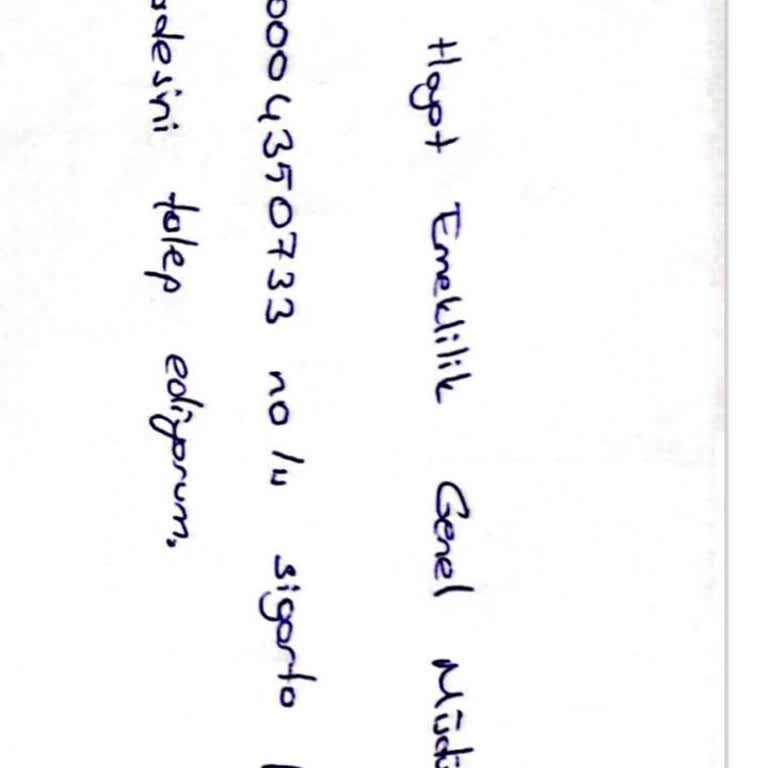 Hayat Emeklilik Genel Müdü
0004350733 no lu sigorta
adesini talep ediyorum.